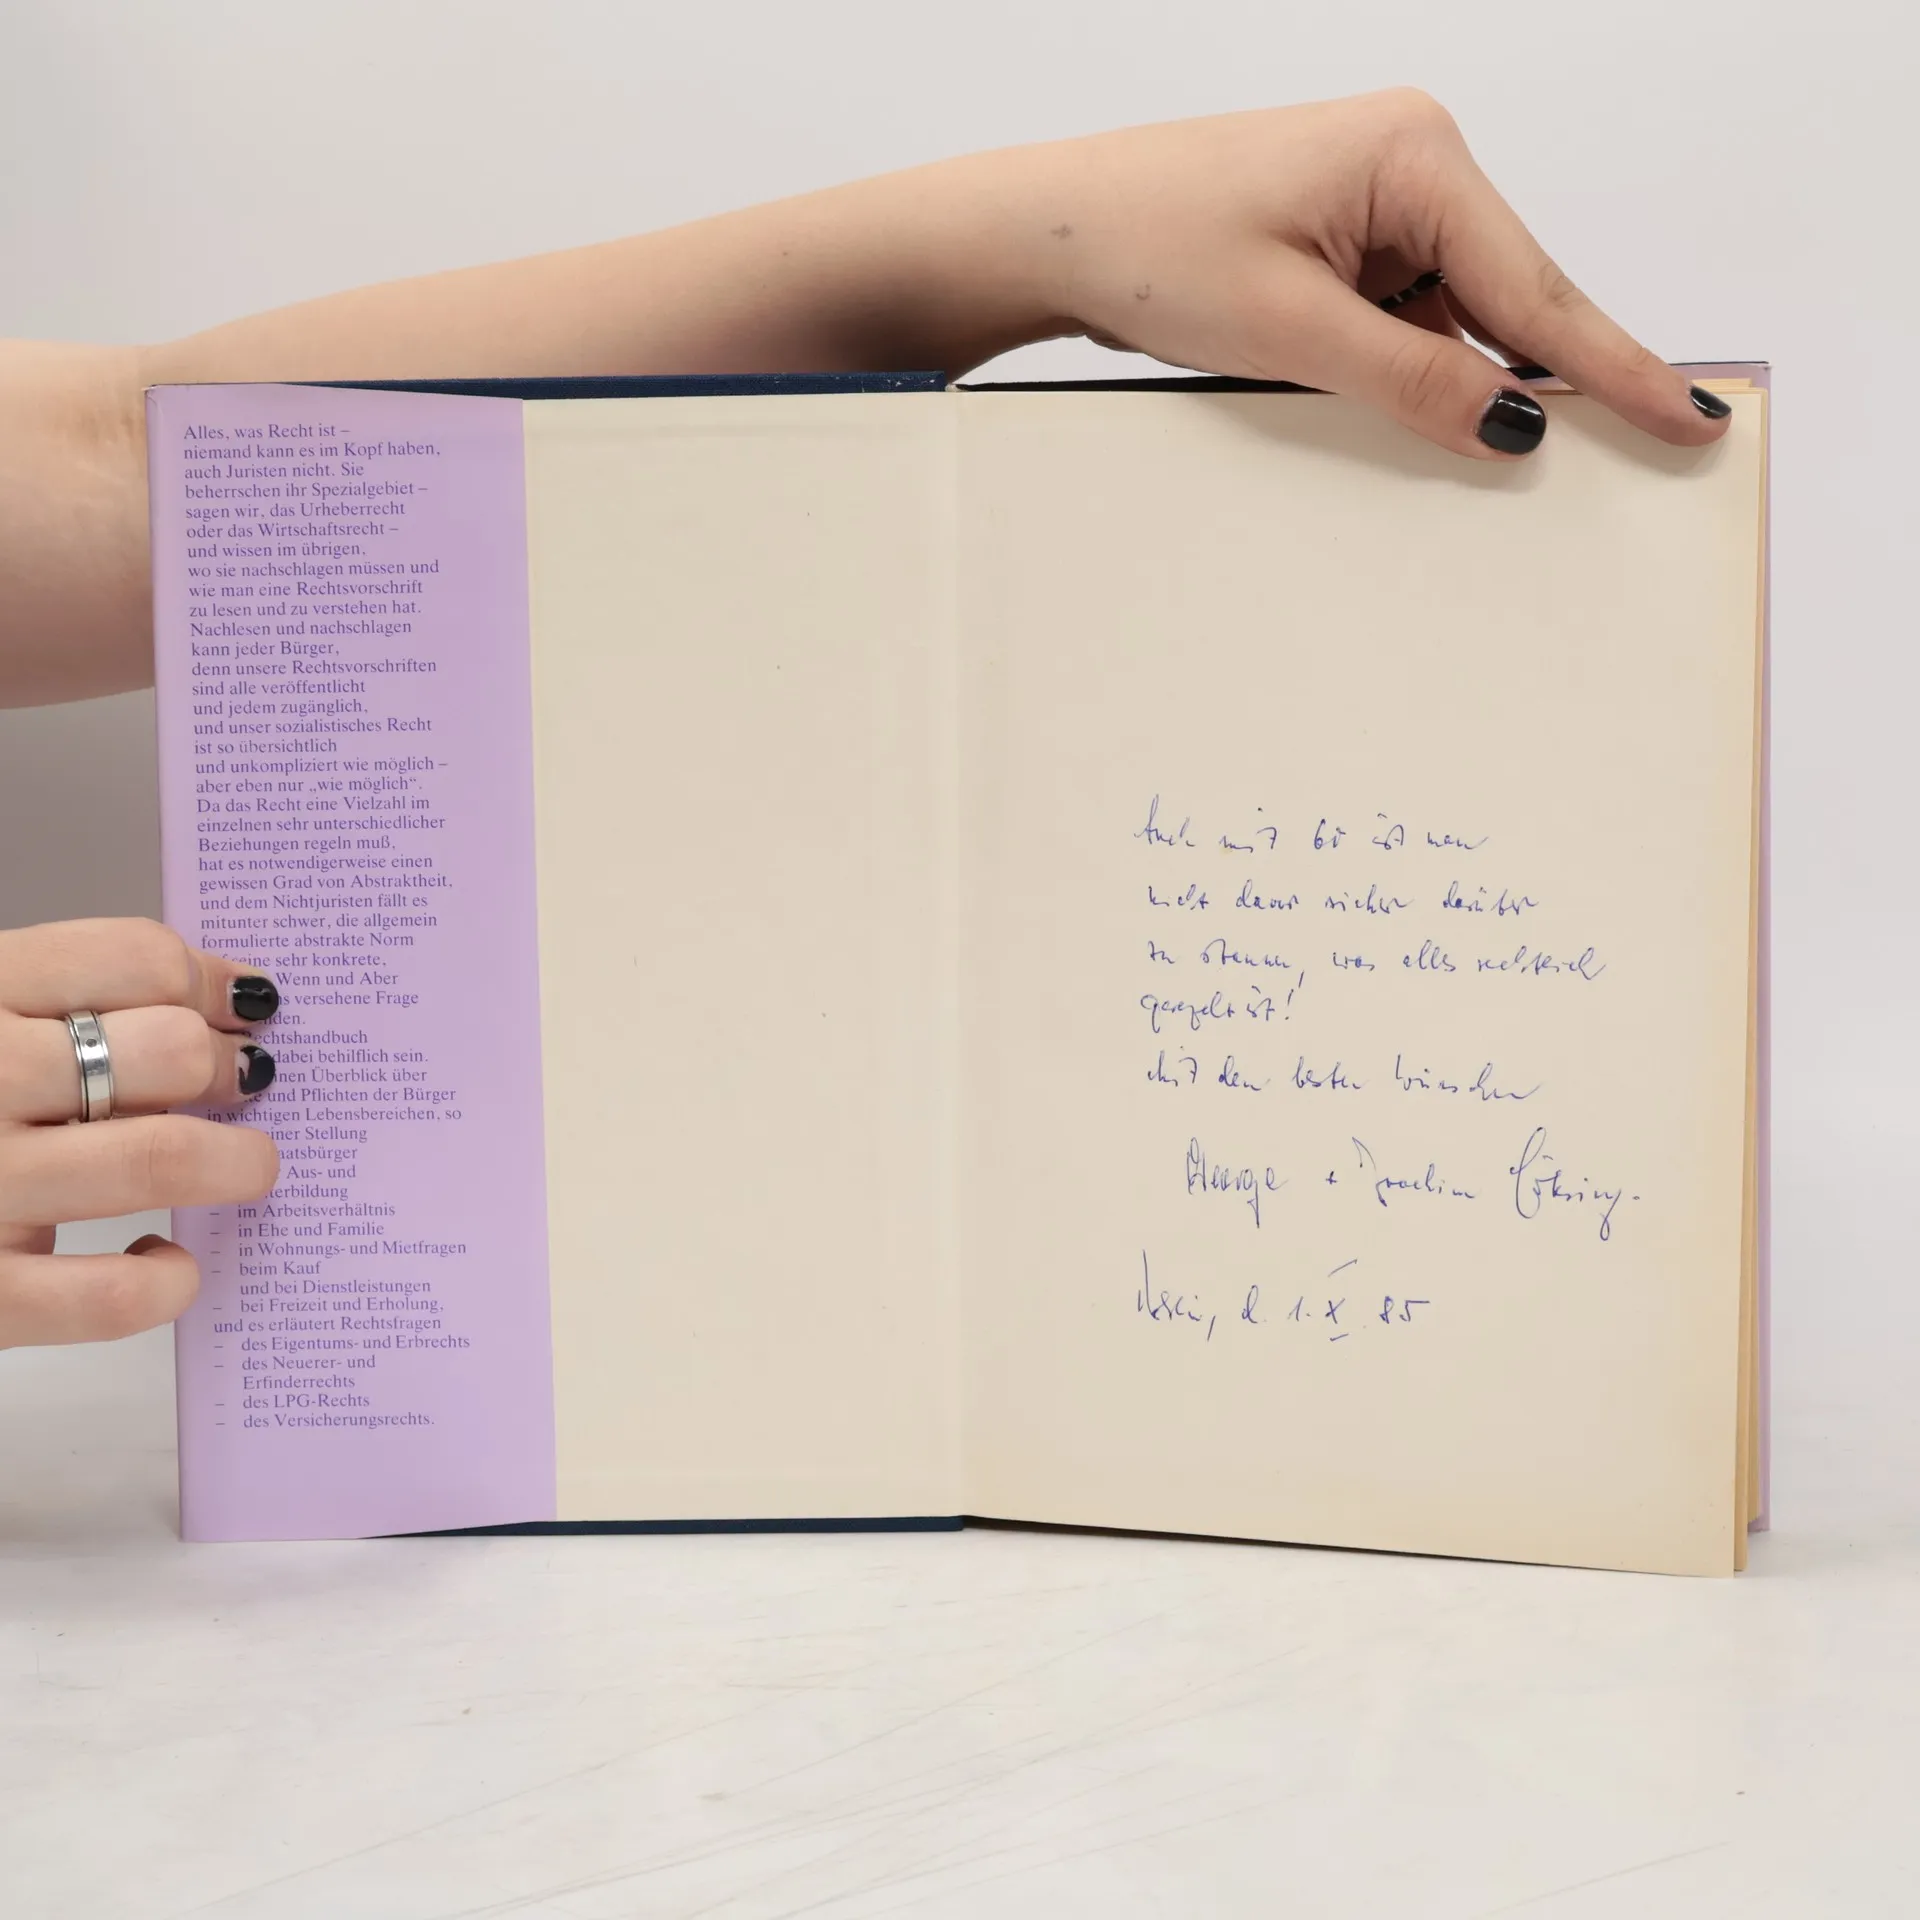 Alles, was Recht ist –
niemand kann es im Kopf haben,
auch Juristen nicht. Sie
beherrschen ihr Spezialgebiet –
sagen wir, das Urheberrecht
oder das Wirtschaftsrecht –
und wissen im übrigen,
wo sie nachschlagen müssen und
wie man eine Rechtsvorschrift
zu lesen und zu verstehen hat.
Nachlesen und nachschlagen
kann jeder Bürger,
denn unsere Rechtsvorschriften
sind alle veröffentlicht
und jedem zugänglich,
und unser sozialistisches Recht
ist so übersichtlich
und unkompliziert wie möglich –
aber eben nur „wie möglich“.
Da das Recht eine Vielzahl im
einzelnen sehr unterschiedlicher
Beziehungen regeln muß,
hat es notwendigerweise einen
gewissen Grad von Abstraktheit,
und dem Nichtjuristen fällt es
mitunter schwer, die allgemein
formulierte abstrakte Norm
eine sehr konkrete,
Wenn und Aber
versehene Frage
echtshandbuch
dabei behilflich sein.
inen Überblick über
und Pflichten der Bürger
in wichtigen Lebensbereichen, so
iner Stellung
aatsbürger
Aus- und
terbildung
– im Arbeitsverhältnis
– in Ehe und Familie
– in Wohnungs- und Mietfragen
– beim Kauf
und bei Dienstleistungen
– bei Freizeit und Erholung,
und es erläutert Rechtsfragen
– des Eigentums- und Erbrechts
– des Neuerer- und
Erfinderrechts
– des LPG-Rechts
– des Versicherungsrechts.
Auch mit 60 ist man
nicht davor sicher darüber
zu staunen, was alles rechtlich
geregelt ist!
Mit den besten Wünschen
+ Joachim
d. 1. X. 85